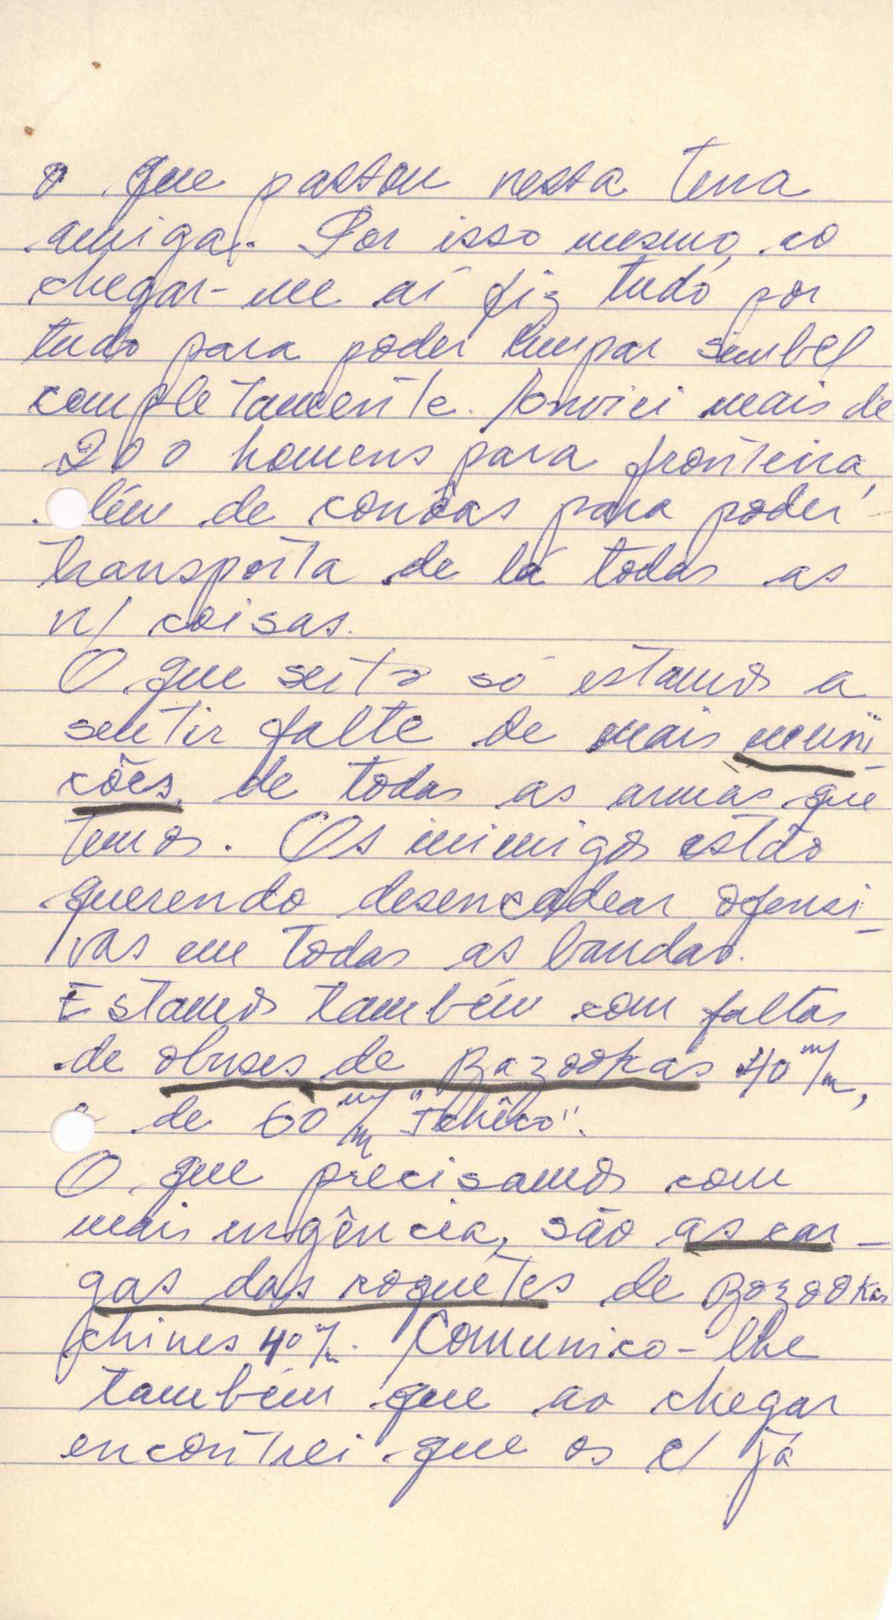 o que passou nessa terra
amiga. Por isso mesmo, ao
chegar-me aí fiz tudo por
tudo para poder limpar simbel
completamente. Enviei mais de
200 homens para fronteira,
lém de conôas para poder
transporta de lá todas as
n/ coisas.
O que seito só estamos a
sentir falta de mais muni
ções, de todas as armas que
temos. Os inimigos estão
querendo desencadear ofensi_
vas em todas as bandas.
Estamos também com faltas
de obuses de Bazookas 40 m/m,
e de 60 m/m "Tchêco".
O que precisamos com
mais urgência, são as car_
gas das roquêtes de Bazookas
chines 40 m/m. Comunico-lhe
também que ao chegar
encontrei que os c/ já